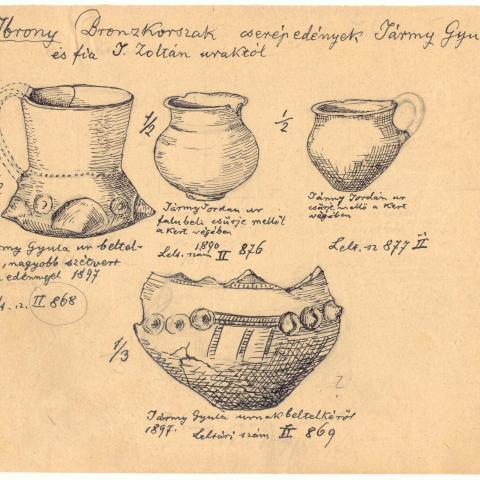 Ibrony Bronzkorszak cserépedények Jármy Gyu
és fia J. Zoltán uraktól
1/2
1/2
Jármy Jordan ur
falubeli csürje mellöl
a Kert végében
1890
Lelt. szám II 876
Jármy Jordán ur
csürje mellöl a Kert
végében
Lelt. sz 877 II
rmy Gyula ur beltel-
, nagyobb szétvert
edénnyel 1897
lt. sz. II 868
1/3
?
Jármy Gyula urnak beltelkéröl
1897. Leltári szám II 869